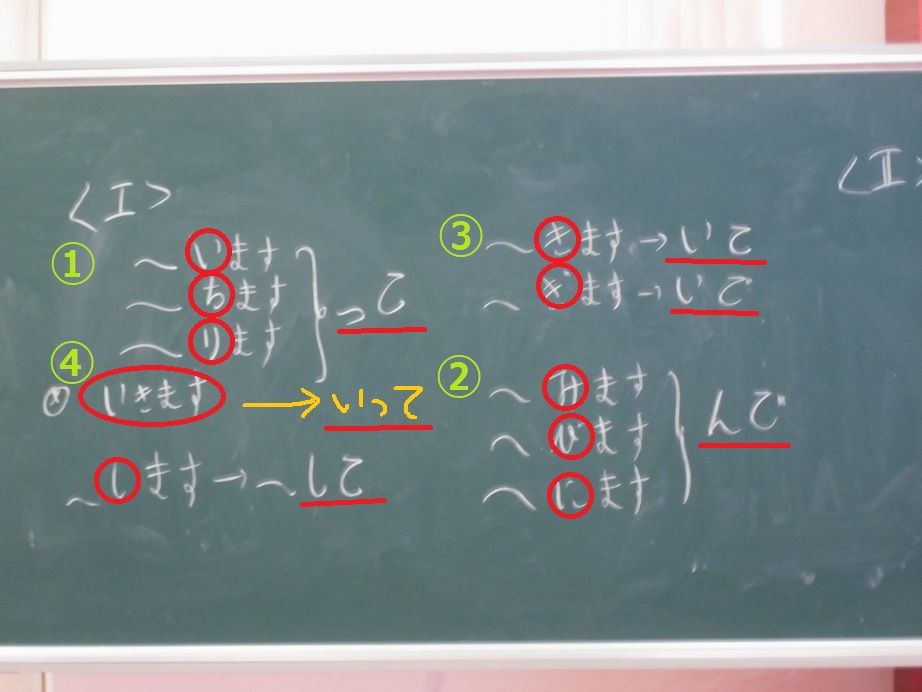 <I>
①
~います
~ちます
~ります
って
④
※ いきます → いって
~します→~して
③
~きます→いて
~ぎます→いで
②
~みます
~びます
~にます
んで
<I>